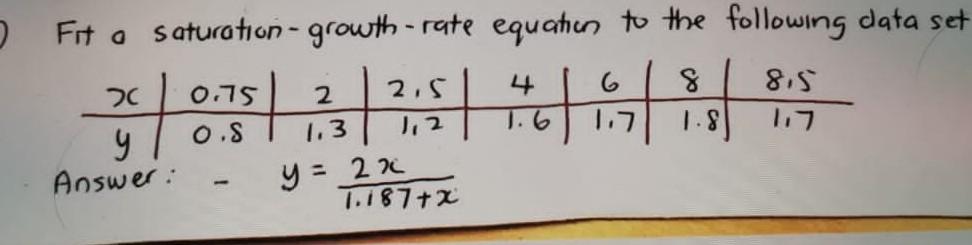 ) Fit a saturation-growth-rate equation to the following data set
x | 0.75 | 2 | 2,5 | 4 | 6 | 8 | 8,5
y | 0.8 | 1.3 | 1,2 | 1.6 | 1.7 | 1.8 | 1,7
Answer: - y = 2x
1.187+x